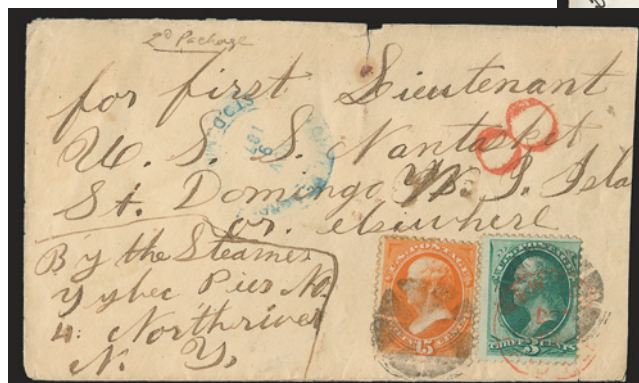 2ᵈ Package
for first Lieutenant
U. S. S. Nantasket
St. Domingo W. I. Isla
or elsiwhere
By the Steamer
Tybec Pier No.
4. North river
N. Y.
8
U.S. POSTAGE
15
U.S. POSTAGE
THREE 3 CENTS